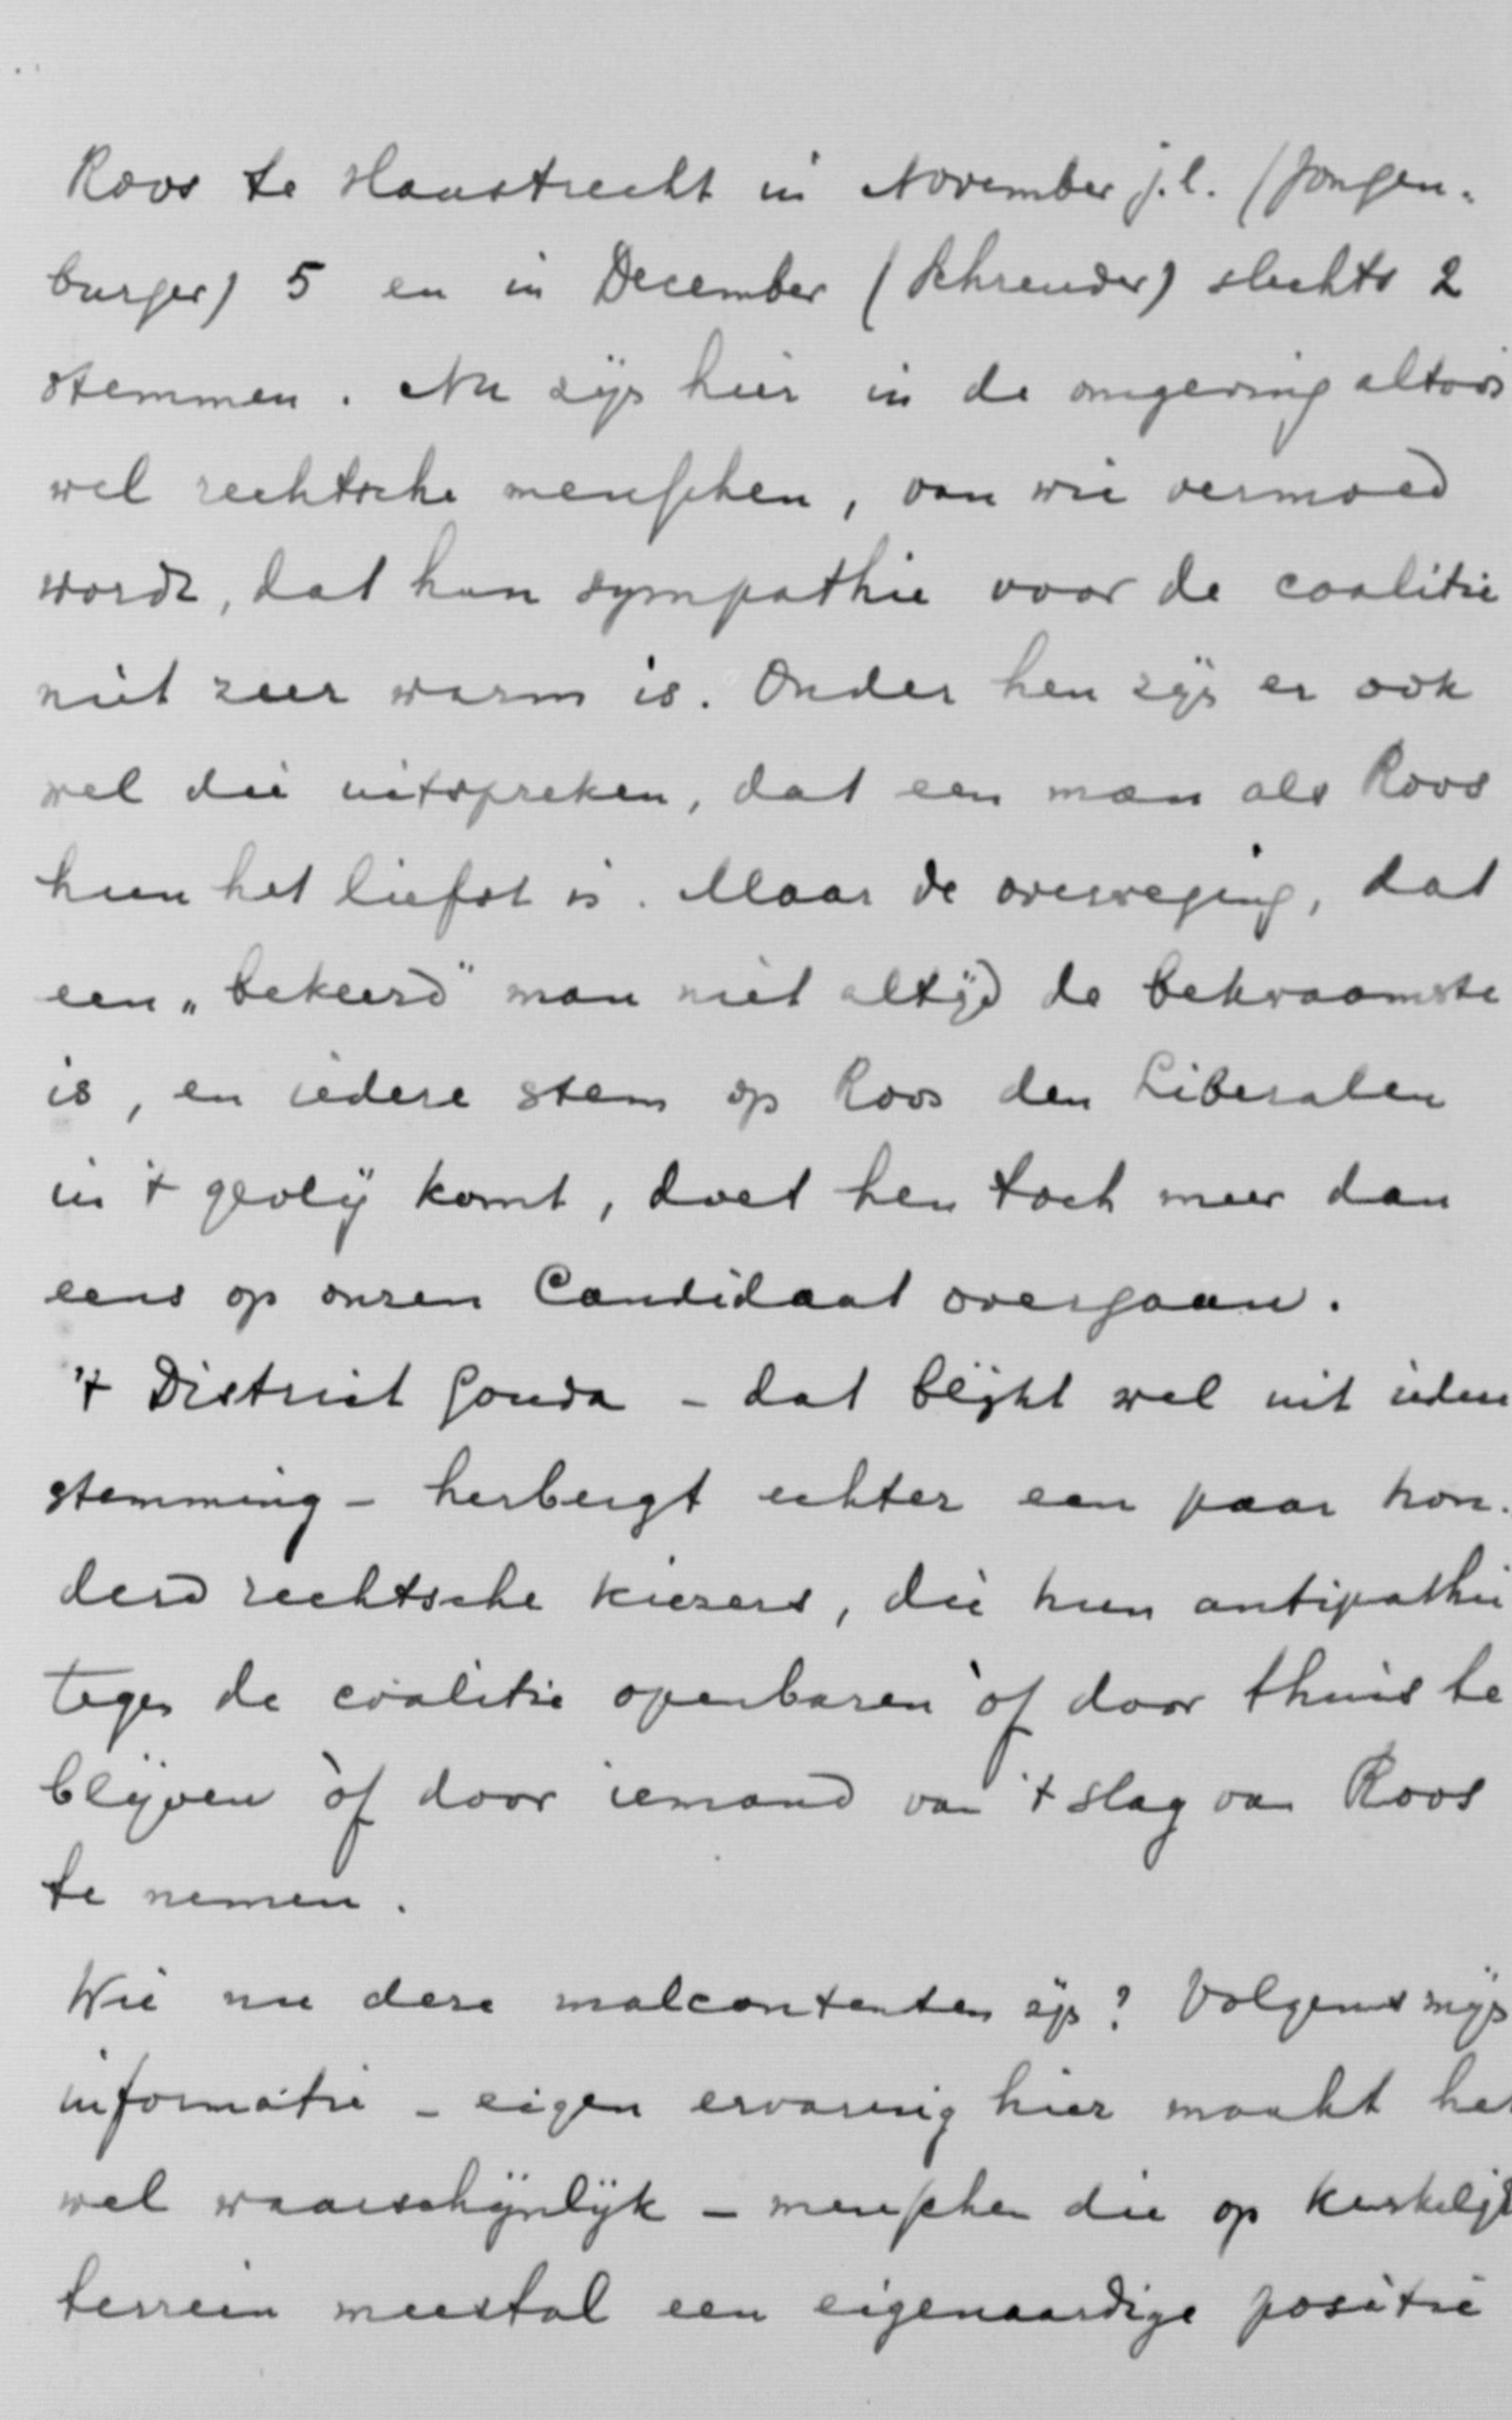 Roos te Haastrecht in November j.l. (Jongen-
burger) 5 en in December (Schreuder) slechts 2
stemmen. Nu zijn hier in de omgeving altoos
wel rechtsche menschen, van wie vermoed
wordt, dat hun sympathie voor de coalitie
niet zeer warm is. Onder hen zijn er ook
wel die uitspreken, dat een man als Roos
hun het liefst is. Maar de overweging, dat
een „bekeerd" man niet altijd de bekwaamste
is, en iedere stem op Roos den Liberalen
in 't gevlij komt, doet hen toch meer dan
eens op onzen Candidaat overgaan.
't District Gouda - dat blijkt wel uit iedere
stemming - herbergt echter een paar hon-
derd rechtsche kiezers, die hun antipathie
tegen de coalitie openbaren òf door thuis te
blijven òf door iemand van 't slag van Roos
te nemen.
Wie nu deze malcontenten zijn? Volgens mijn
informatie - eigen ervaring hier maakt het
wel waarschijnlijk - menschen die op kerkelijk
terrein meestal een eigenaardige positie